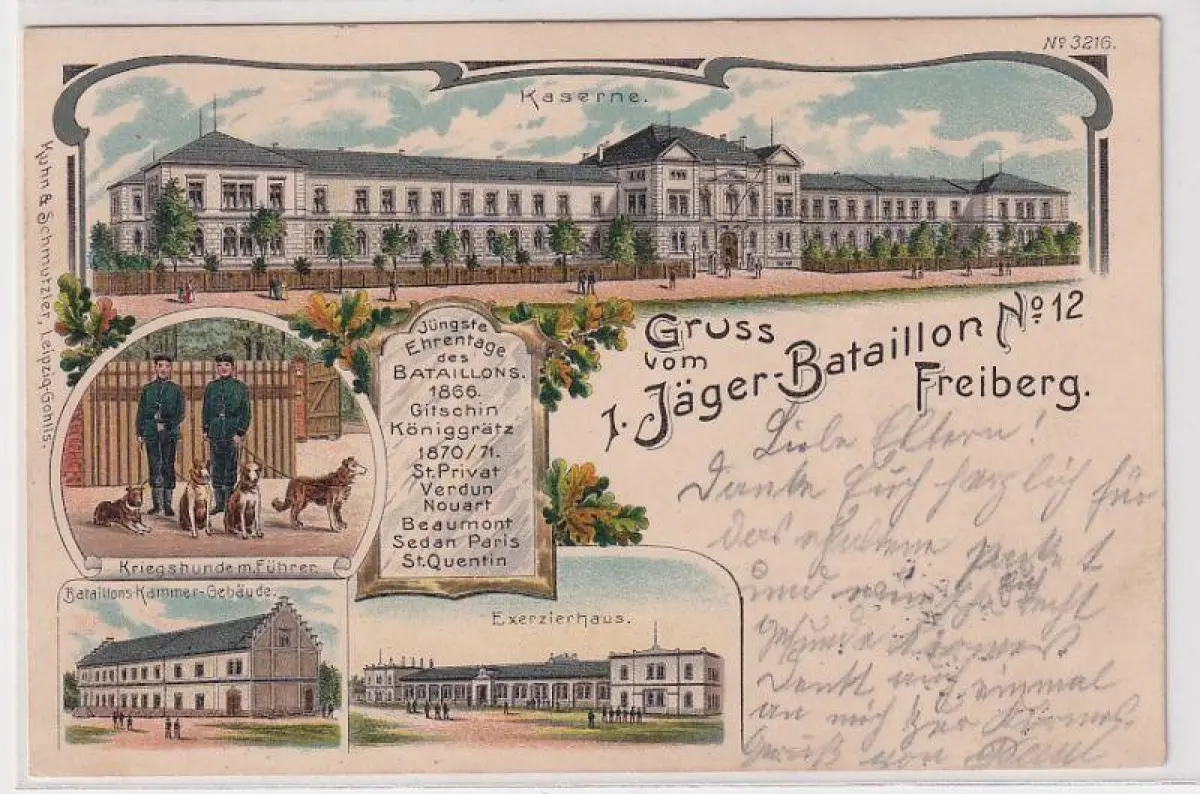 No 3216.
Kaserne.
Kuhn & Schmutzler, Leipzig-Gohlis.
Jüngste
Ehrentage
des
Bataillons.
1866.
Gitschin
Königgrätz
1870/71.
St. Privat
Verdun
Nouart
Beaumont
Sedan Paris
St. Quentin
Gruss
vom
1. Jäger-Bataillon No 12
Freiberg.
Kriegshunde m. Führer.
Bataillons-Kammer-Gebäude.
Exerzierhaus.
Liebe Eltern!
Danke Euch herzlich für
das erhaltene Paket
und wünsche Euch recht
gesunde Kirmes
Denkt auch einmal
an mich zur Kirmes.
Gruß von Paul